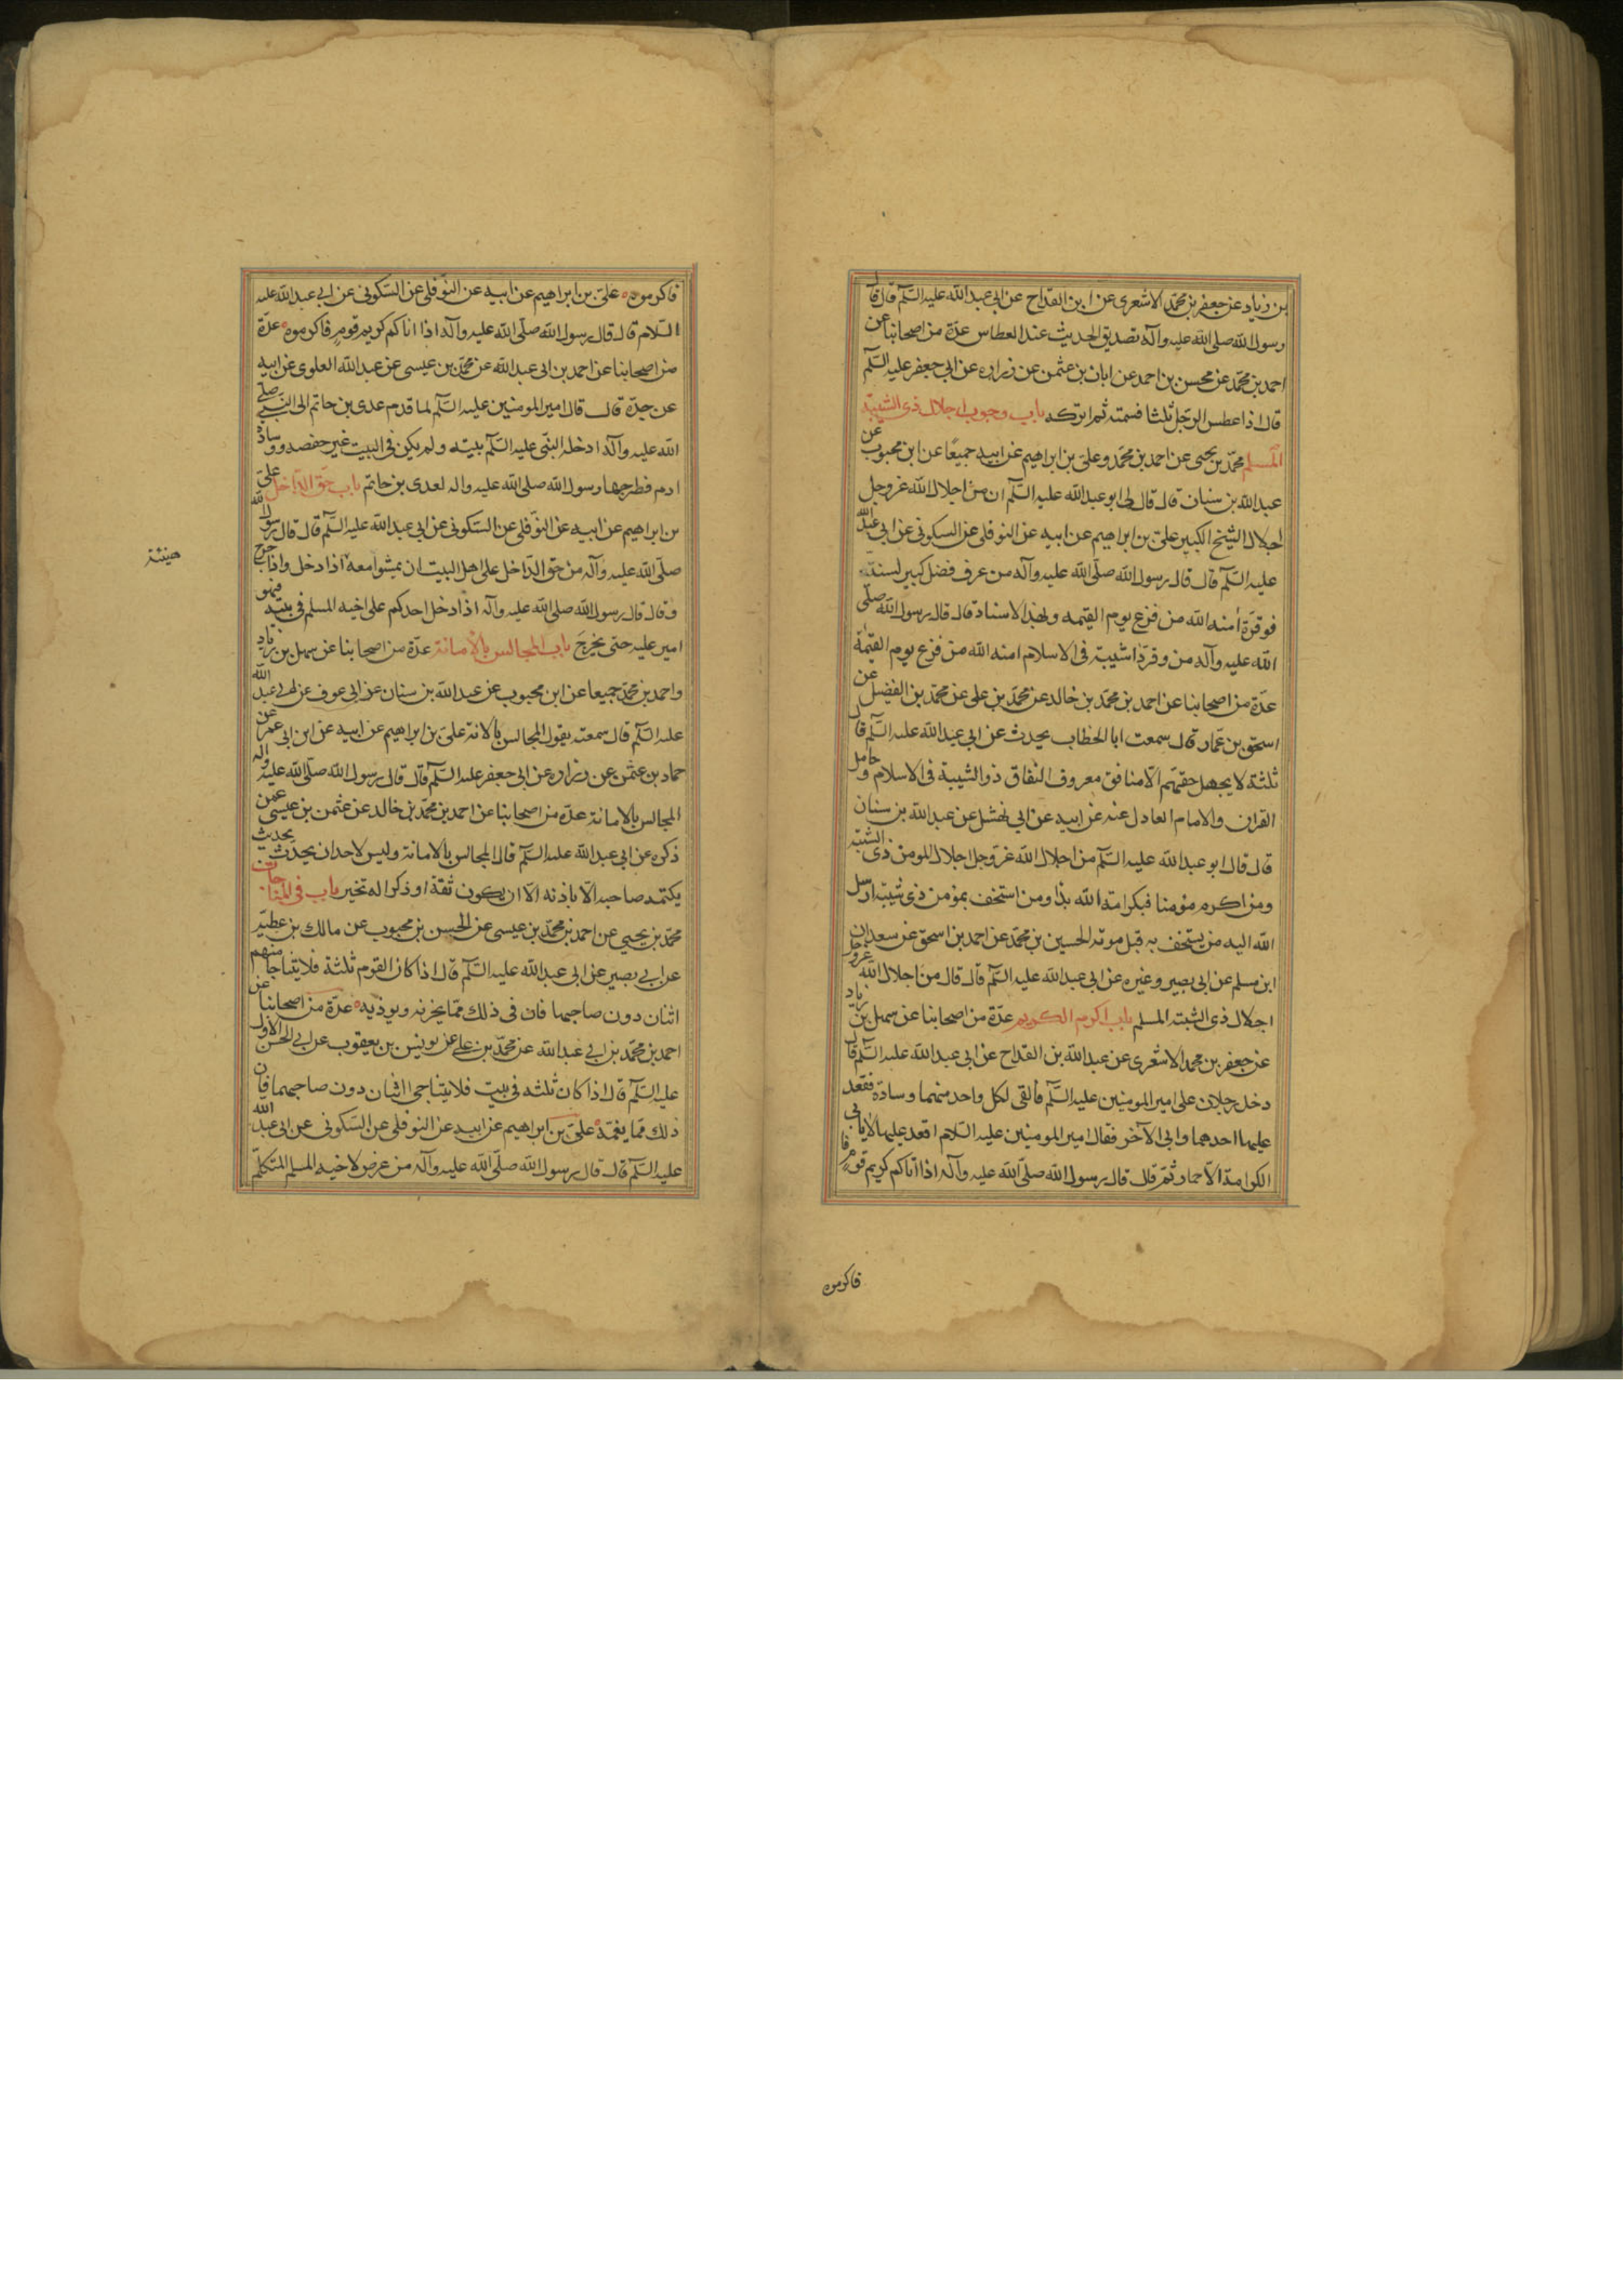 بن زياد عن جعفر بن محمّد الاشعرى عن ابن القداح عن ابى عبد الله عليه السّلم قال قال
رسول الله صلى الله عليه وآله تصديق الحديث عند العطاس عدّة من اصحابنا عن
احمد بن محمّد عن محسن بن احمد عن ابان بن عثمن عن زراره عن ابى جعفر عليه السّلم
قال اذا عطس الرجل ثلثا فسمته ثم اتركه باب وجوب اجلال ذى الشيبة
المسلم محمّد بن يحيى عن احمد بن محمّد وعلى بن ابراهيم عن ابيه جميعًا عن ابن محبوب عن
عبد الله بن سنان قال قال لى ابو عبد الله عليه السّلم ان من اجلال الله عز وجل
اجلال الشيخ الكبير على بن ابراهيم عن ابيه عن النوفلى عن السكونى عن ابى عبد الله
عليه السّلم قال قال رسول الله صلّى الله عليه وآله من عرف فضل كبير لسنه
فوقره امنه الله من فزع يوم القيمه وبهذا الاسناد قال قال رسول الله صلى
الله عليه وآله من وقر ذا شيبة فى الاسلام امنه الله من فزع يوم القيمة
عدّة من اصحابنا عن احمد بن محمّد بن خالد عن محمّد بن على عن محمّد بن الفضيل عن
اسحق بن عمار قال سمعت ابا الخطاب يحدث عن ابى عبد الله عليه السّلم قال
ثلثة لا يجهل حقهم الّا منافق معروف النفاق ذو الشيبة فى الاسلام وحامل
القران والامام العادل عنه عن ابيه عن ابى نهشل عن عبد الله بن سنان
قال قال ابو عبد الله عليه السّلم من اجلال الله عز وجل اجلال المومن ذى الشيبة
ومن اكرم مؤمنا فبكرامة الله بدا ومن استخف بمؤمن ذى شيبة ارسل
الله اليه من يستخف به قبل موته الحسين بن محمّد عن احمد بن اسحق عن سعدان
ابن مسلم عن ابى بصير وغيره عن ابى عبد الله عليه السّلم قال قال من اجلال الله عز وجل
اجلال ذى الشيبة المسلم باب اكرم الكريم عدّة من اصحابنا عن سهل بن زياد
عن جعفر بن محمد الاشعرى عن عبد الله بن القداح عن ابى عبد الله عليه السّلم قال
دخل رجلان على امير المومنين عليه السّلم فالقى لكل واحد منهما وسادة فقعد
عليها احدهما وابى الآخر فقال امير المومنين عليه السّلام اقعد عليها لا يابى
الكرامة الّا حمار ثم قال قال رسول الله صلّى الله عليه وآله اذا اتاكم كريم قوم
فاكرموه
فاكرموه على بن ابراهيم عن ابيه عن النوفلى عن السّكونى عن ابى عبد الله عليه
السّلام قال قال رسول الله صلّى الله عليه وآله اذا اتاكم كريم قوم فاكرموه عدّة
من اصحابنا عن احمد بن ابى عبد الله عن محمّد بن عيسى عن عبد الله العلوى عن ابيه
عن جدّه قال قال امير المومنين عليه السّلم لما قدم عدى بن حاتم الى النبى صلى
الله عليه وآله ادخله النبى عليه السّلم بيته ولم يكن فى البيت غير خصفه ووسادة
ادم فطرحها رسول الله صلى الله عليه واله لعدى بن حاتم باب حق الداخل على
بن ابراهيم عن ابيه عن النوفلى عن السّكونى عن ابى عبد الله عليه السّلم قال قال رسول الله
صلّى الله عليه وآله من حق الدّاخل على اهل البيت ان يمشوا معه اذا دخل واذا خرج
هنيئة
وقال قال رسول الله صلى الله عليه وآله اذا دخل احدكم على اخيه المسلم فى بيته فهو
امير عليه حتى يخرج باب المجالس بالامانة عدّة من اصحابنا عن سهل بن زياد
واحمد بن محمّد جميعا عن ابن محبوب عن عبد الله بن سنان عن ابى عوف عن ابى عبد الله
عليه السّلم قال سمعته يقول المجالس بالامانة على بن ابراهيم عن ابيه عن ابن ابى عمير عن
حماد بن عثمن عن زراره عن ابى جعفر عليه السّلم قال قال رسول الله صلّى الله عليه واله
المجالس بالامانة عدّة من اصحابنا عن احمد بن محمّد بن خالد عن عثمن بن عيسى عمن
ذكره عن ابى عبد الله عليه السّلم قال المجالس بالامانة وليس لاحد ان يحدث بحديث
يكتمه صاحبه الّا باذنه الّا ان يكون ثقة او ذكرا له بخير باب فى المناجات
محمّد بن يحيى عن احمد بن محمّد بن عيسى عن الحسن بن محبوب عن مالك بن عطيه
عن ابى بصير عن ابى عبد الله عليه السّلم قال اذا كان القوم ثلثة فلا يتناجا منهم
اثنان دون صاحبهما فان فى ذلك ممّا يحزنه ويوذيه عدّة من اصحابنا عن
احمد بن محمّد بن ابى عبد الله عن محمّد بن على عن يونس بن يعقوب عن ابى الحسن الاول
عليه السّلم قال اذا كان ثلثه فى بيت فلا يتناجى اثنان دون صاحبهما فان
ذلك ممّا يغمّه على بن ابراهيم عن ابيه عن النوفلى عن السّكونى عن ابى عبد الله
عليه السّلم قال قال رسول الله صلّى الله عليه وآله من عرض لاخيه المسلم المتكلّم